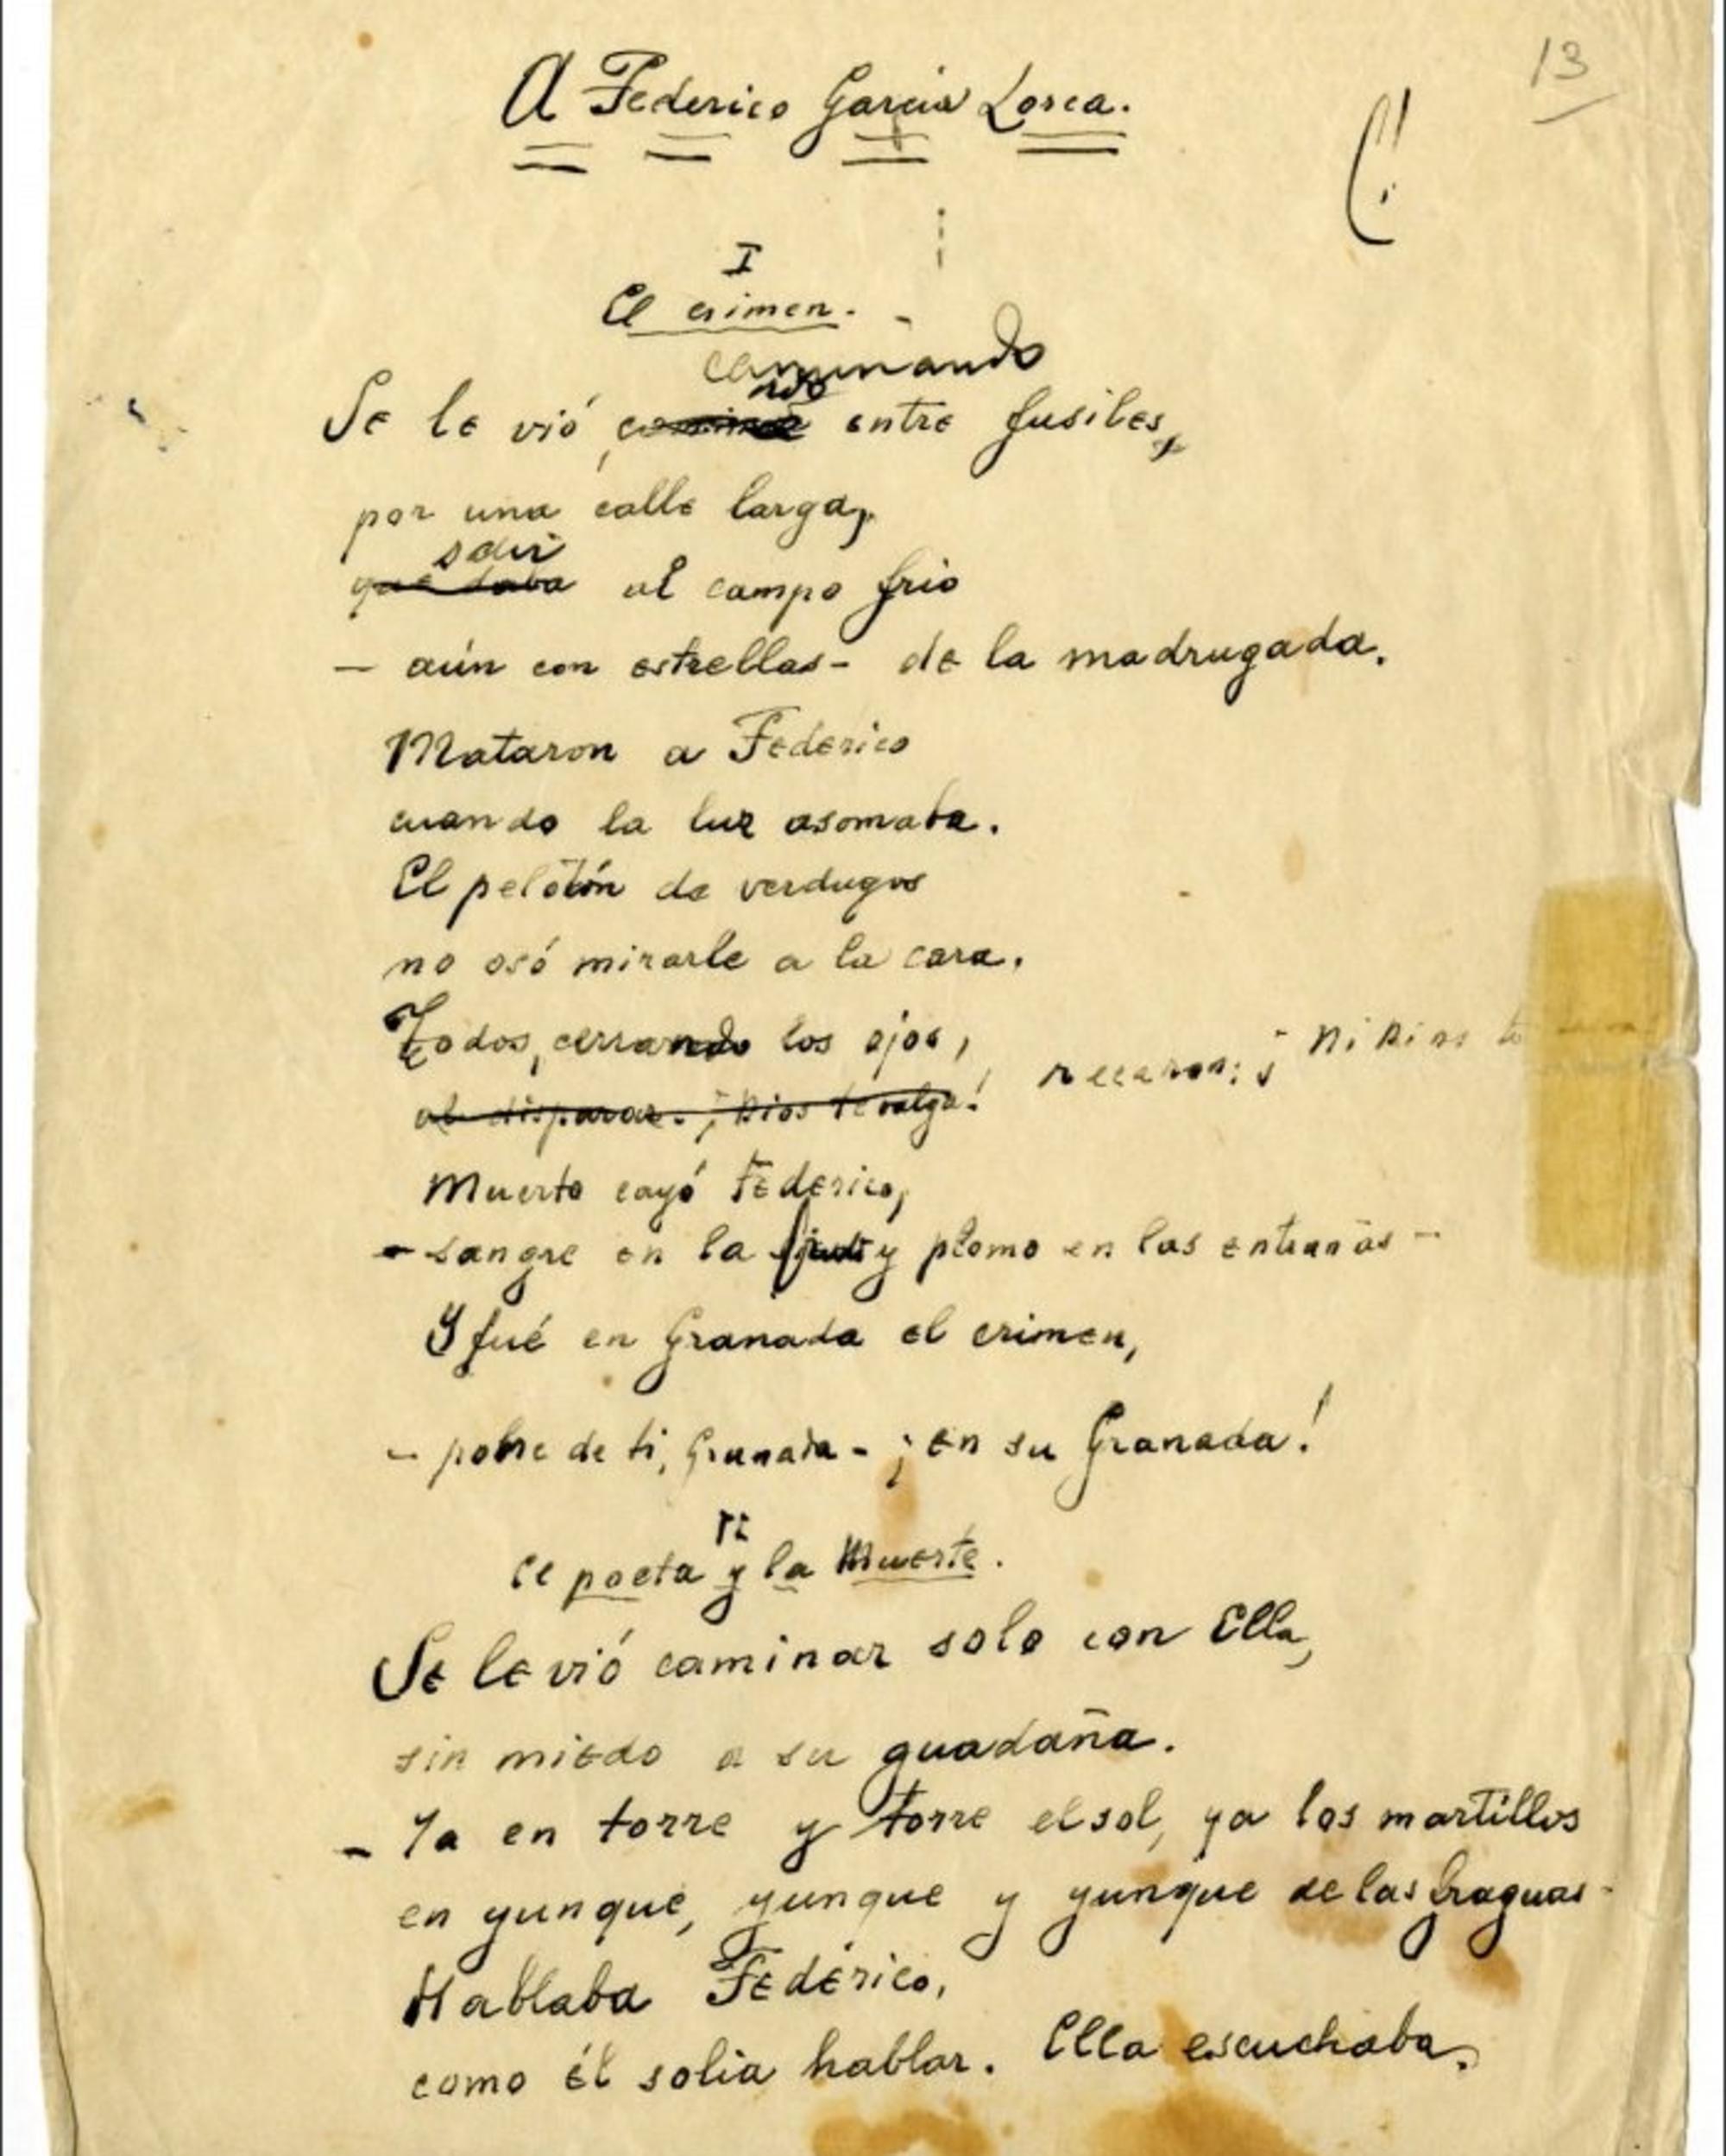 13
A Federico García Lorca.
I
El crimen.
caminando
Se le vió, entre fusiles,
por una calle larga,
salir
que daba al campo frio
- aún con estrellas - de la madrugada.
Mataron a Federico
cuando la luz asomaba.
El pelotón de verdugos
no osó mirarle a la cara.
Todos, cerrando los ojos,
rezaron: ¡ni Dios te
al disparar. ¡Dios te valga!
Muerto cayó Federico,
- sangre en la frente y plomo en las entrañas -
Y fué en Granada el crimen,
- pobre de ti, Granada - ¡en su Granada!
II
El poeta y la Muerte.
Se le vió caminar solo con Ella,
sin miedo a su guadaña.
- Ya en torre y torre el sol, ya los martillos
en yunque, yunque y yunque de las fraguas -
Hablaba Federico,
como él solia hablar. Ella escuchaba.